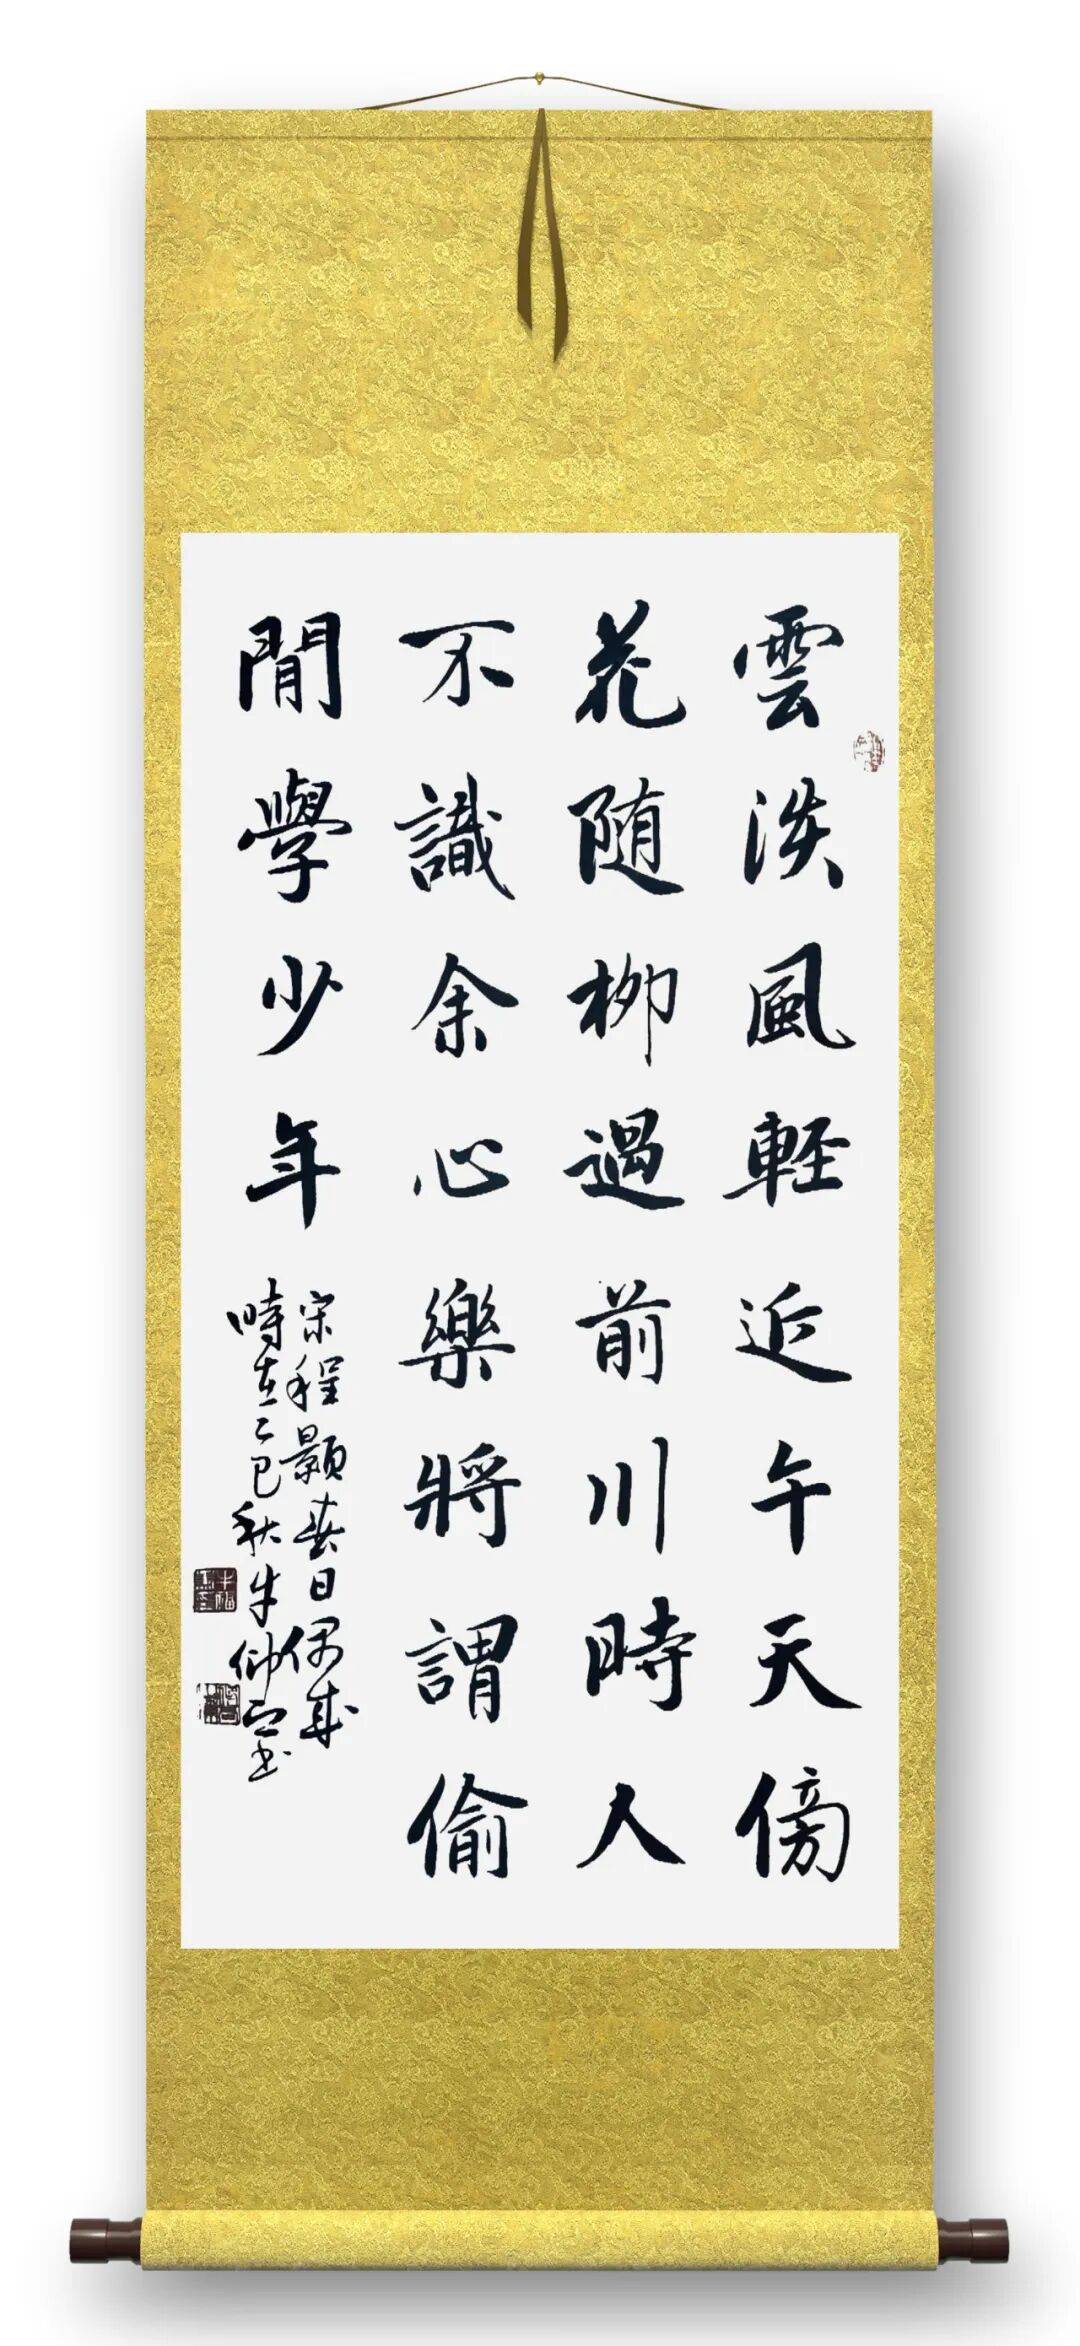 雲淡風軽近午天傍
花随柳過前川時人
不識余心樂將謂偷
閒學少年
宋程顥春日偶成
時在乙巳秋牛仰山書